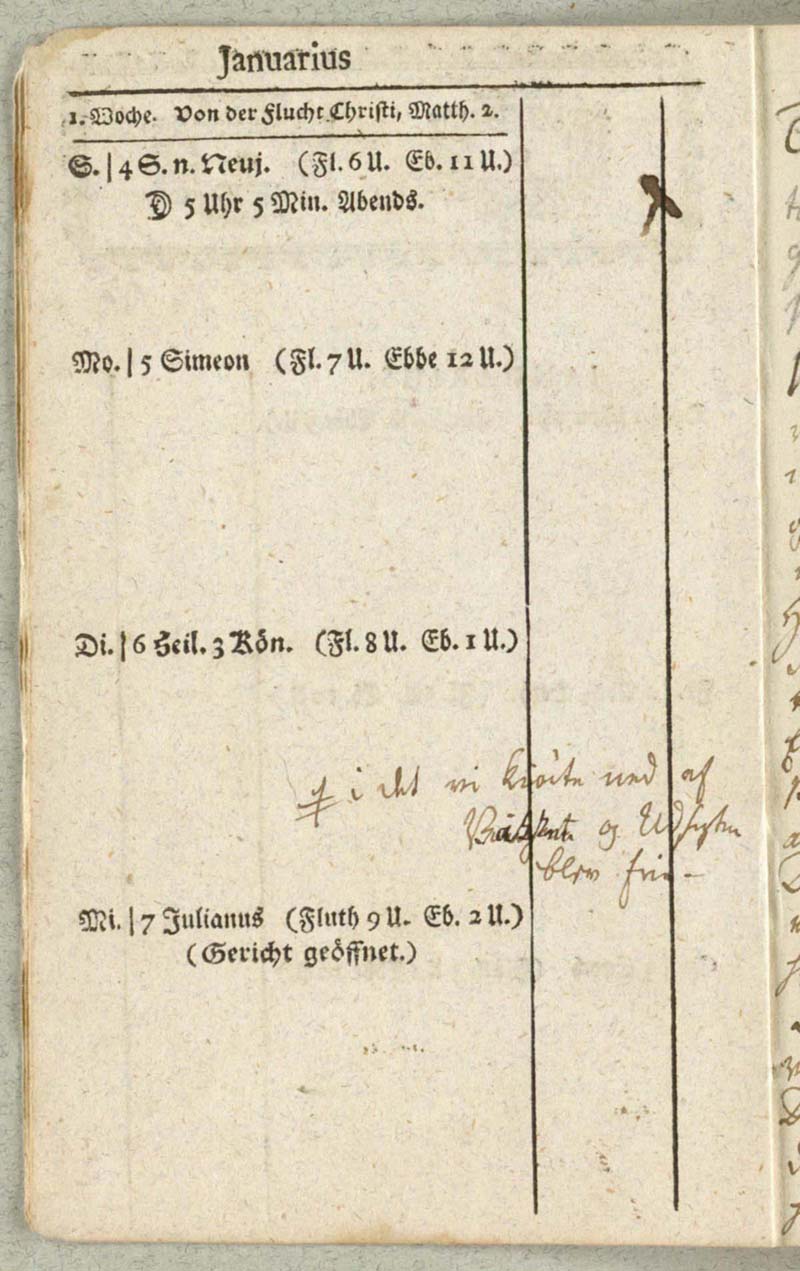 Januarius
1. Woche. Von der Flucht Christi, Matth. 2.
S. | 4 S. n. Neuj. (Fl. 6 U. Eb. 11 U.)
☽ 5 Uhr 5 Min. Abends.
Mo. | 5 Simeon (Fl. 7 U. Ebbe 12 U.)
Di. | 6 Heil. 3 Kön. (Fl. 8 U. Eb. 1 U.)
i det vi kiöite ned af
og Udsigten
blev frie -
Mi. | 7 Julianus (Fluth 9 U. Eb. 2 U.)
(Gericht geöffnet.)